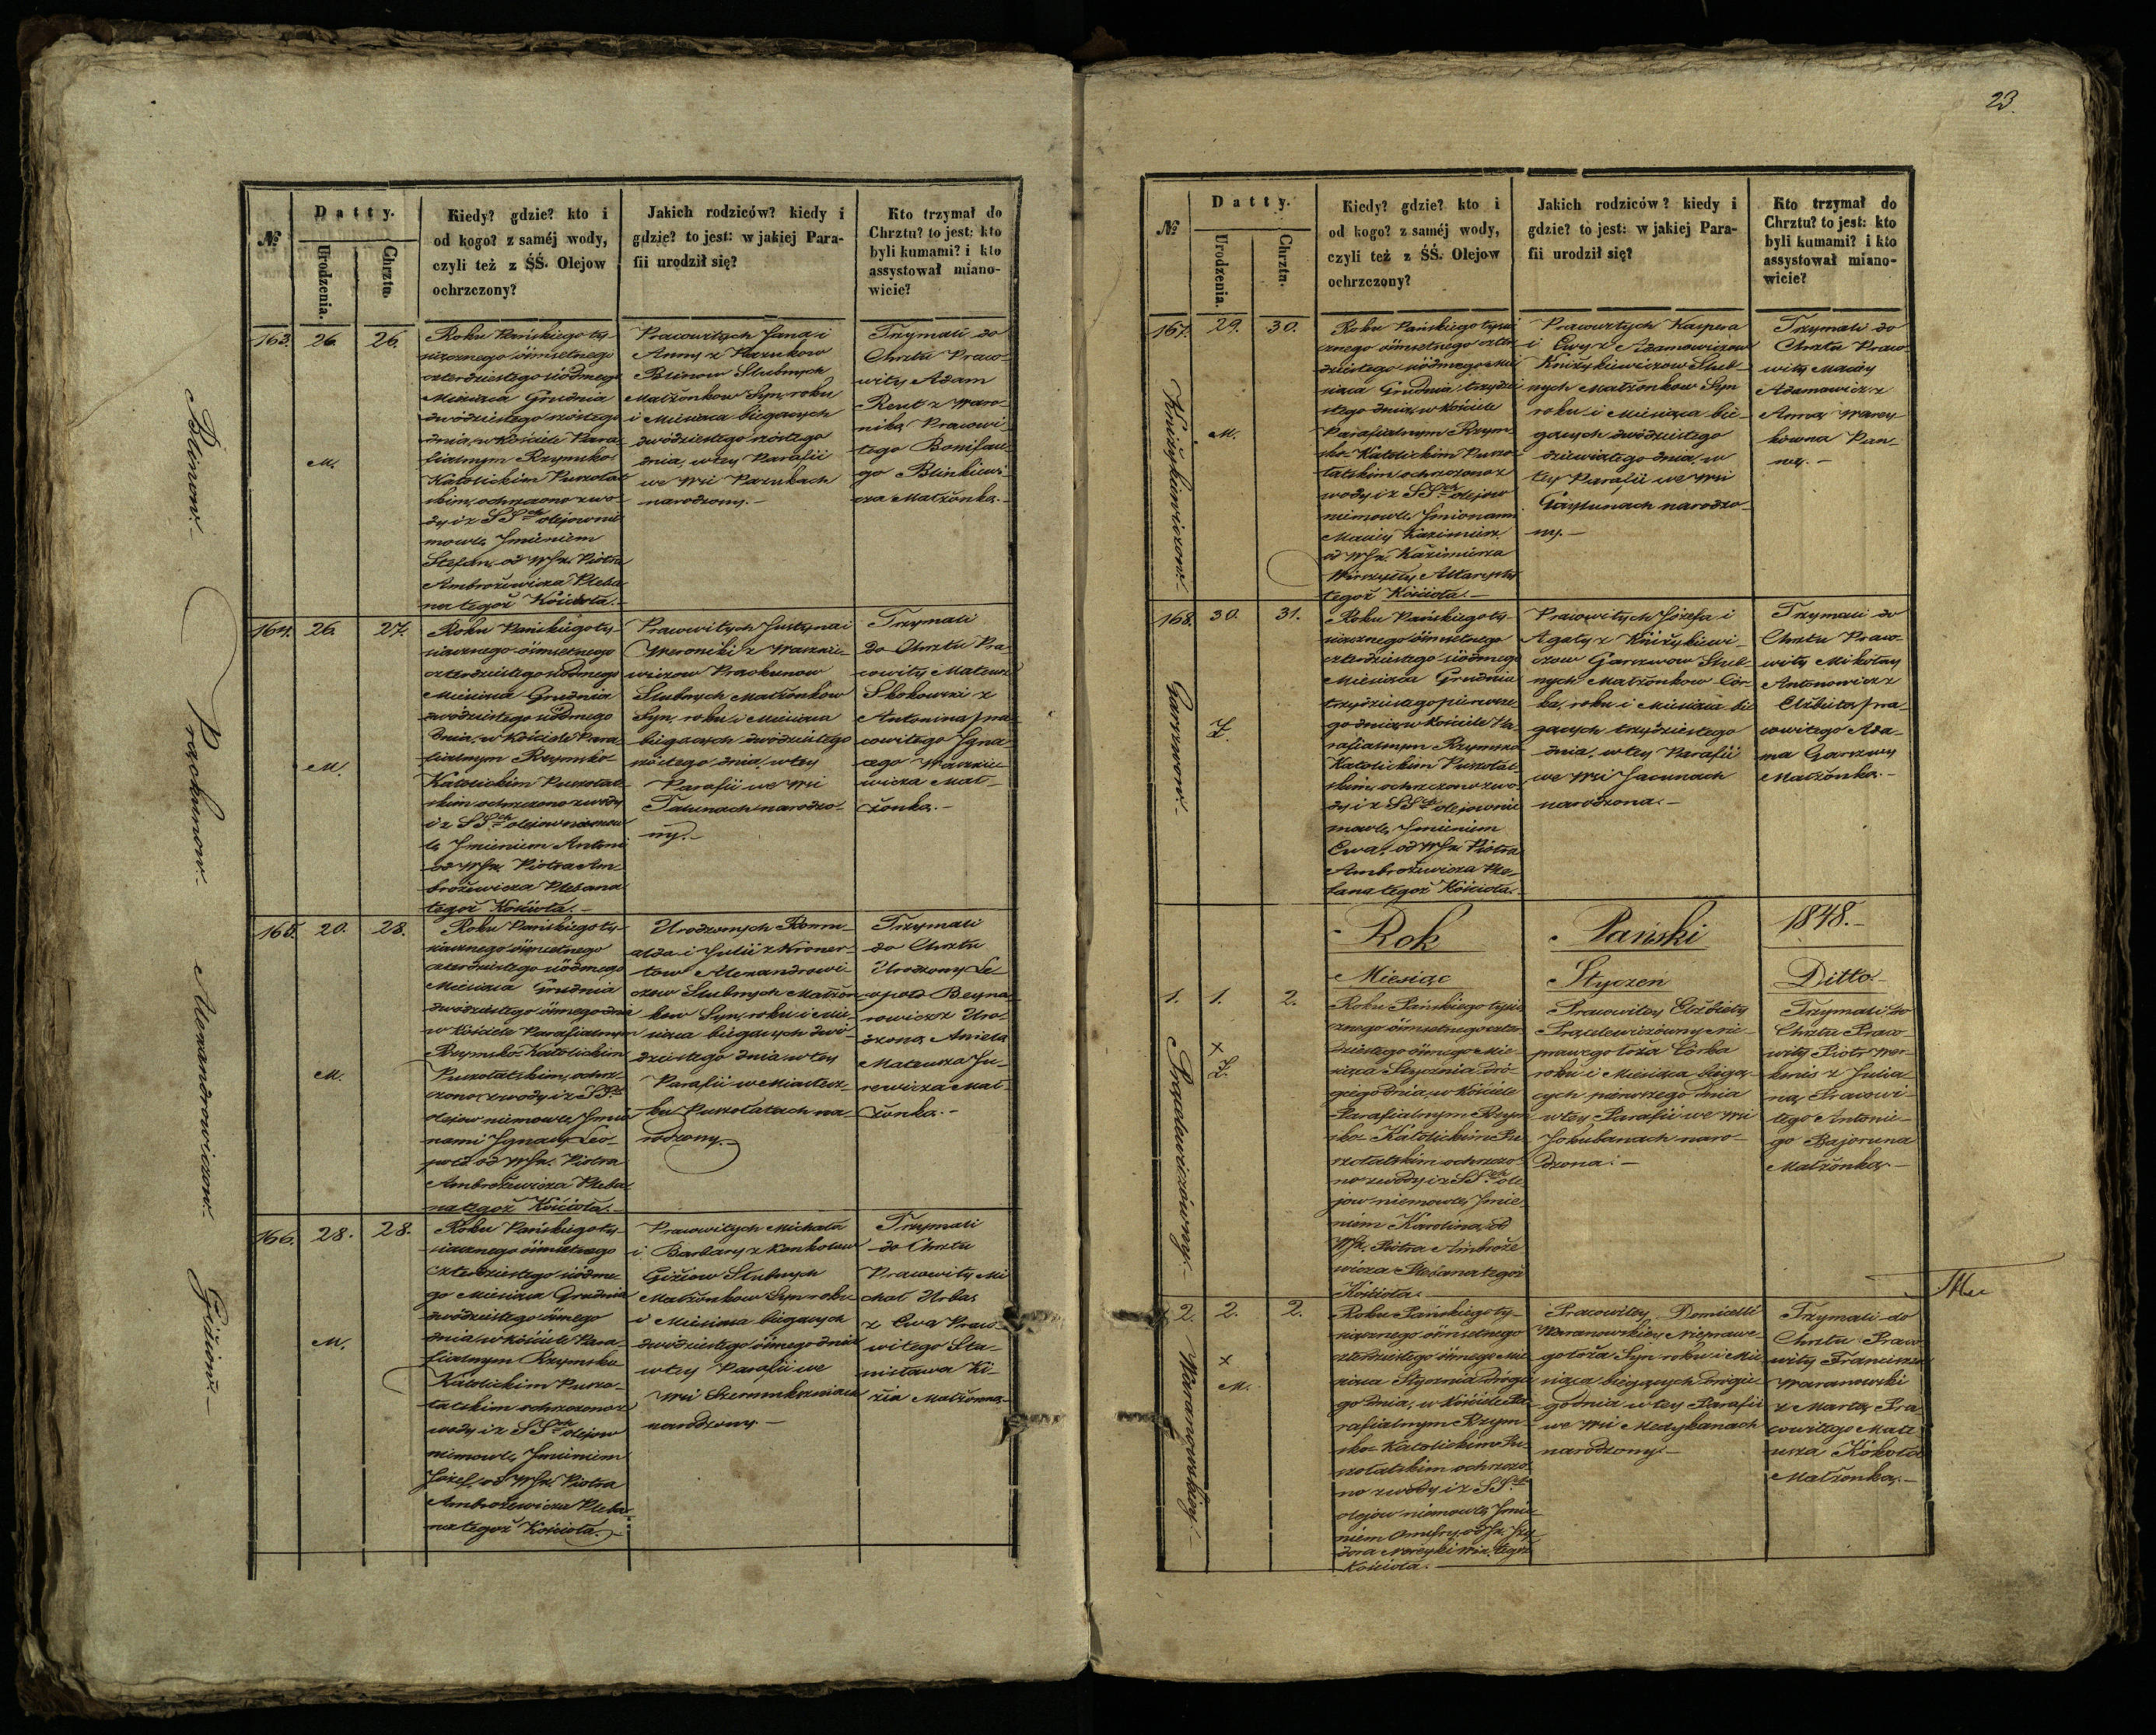 23.
№
Datty.
Urodzenia.
Chrztu.
Kiedy? gdzie? kto i
od kogo? z saméj wody,
czyli też z ŚŚ. Olejow
ochrzczony?
Jakich rodziców? kiedy i
gdzie? to jest: w jakiej Para-
fii urodził się?
Kto trzymał do
Chrztu? to jest: kto
byli kumami? i kto
assystował miano-
wicie?
Blinow.-
163. 26. 26.
M.
Roku Pańskiego ty-
siącznego ośmsetnego
czterdziestego siódmego
Miesiąca Grudnia
dwódziestego szóstego
dnia, w Kościele Para-
fialnym Rzymsko
Katolickim Puszołat-
skim, ochrzczono z wo-
dy i z SSch olejow nie
mowle Jmieniem
Stefan, od WJx. Piotra
Ambrożewicza Pleba-
na tegoż Kościoła.-
Pracowitych Jana i
Anny z Pazukow
Blinow Slubnych
Małżonkow Syn, roku
i Miesiąca bieżących
dwódziestego szóstego
dnia, w tey Parafii
we Wsi Pazukach
narodzony.-
Trzymali do
Chrztu Praco-
wity Adam
Reut z Waro-
niką Pracowi-
tego Bonifac-
go Blinkiewi-
cza Małżonką.-
Prockunow.
164. 26. 27.
M.
Roku Pańskiego ty-
siącznego ośmsetnego
czterdziestego siódmego
Miesiąca Grudnia
dwódziestego siódmego
dnia, w Kościele Para-
fialnym Rzymsko
Katolickim Puszołat-
skim ochrzczono z wody
i z SSch olejow niemow-
le Jmieniem Antoni
od WJx. Piotra Am-
brożewicza Plebana
tegoż Kościoła.-
Pracowitych Justyna i
Weroniki z Waszkie-
wiczow Prockunow
Slubnych Małżonkow
Syn, roku i Miesiąca
bieżących dwódziestego
szóstego dnia, w tey
Parafii we Wsi
Tatunach narodzo-
ny.-
Trzymali
do Chrztu Pra-
cowity Mateusz
Skokowski z
Antoniną pra-
cowitego Jgna-
cego Waszkie-
wicza Mał-
żonką.-
Alexandrowiczow.
165. 20. 28.
M.
Roku Pańskiego ty-
siącznego ośmsetnego
czterdziestego siódmego
Miesiąca Grudnia
dwódziestego ósmego dnia
w Kościele Parafialnym
Rzymsko Katolickim
Puszołatskim, ochrz-
czono z wody i z SSch
olejow niemowle Jmio-
nami Jgnacy Leo-
pold od WJx. Piotra
Ambrożewicza Pleba-
na tegoż Kościoła.-
Urodzonych Romu-
alda i Julii z Kroner-
tow Alexandrowi-
czow Slubnych Małżon-
kow Syn, roku i Mie-
siąca bieżących dwó-
dziestego dnia w tey
Parafii w Miastecz-
ku Puszołatach na-
rodzony.-
Trzymali
do Chrztu
Urodzony Le-
opold Beyna-
rowicz z Uro-
dzoną Anielą
Mateusza Ju-
rewicza Mał-
żonką.-
Giżiow.-
166. 28. 28.
M.
Roku Pańskiego ty-
siącznego ośmsetnego
czterdziestego siódme-
go Miesiąca Grudnia
dwódziestego ósmego
dnia, w Kościele Para-
fialnym Rzymsko
Katolickim Puszo-
łatskim ochrzczono z
wody i z SSch olejow
niemowle Jmieniem
Józef, od WJx. Piotra
Ambrożewicza Pleba-
na tegoż Kościoła.-
Pracowitych Michała
i Barbary z Konkolow
Giżiow Slubnych
Małżonkow Syn roku
i Miesiąca bieżących
dwódziestego ósmego dnia
w tey Parafii we
Wsi
narodzony.-
Trzymali
do Chrztu
Pracowity Mi-
chał Urbas
z Ewą Praco-
witego Sta-
nisława Ki-
zia Małżonką.-
№
Datty.
Urodzenia.
Chrztu.
Kiedy? gdzie? kto i
od kogo? z saméj wody,
czyli też z ŚŚ. Olejow
ochrzczony?
Jakich rodziców? kiedy i
gdzie? to jest: w jakiej Para-
fii urodził się?
Kto trzymał do
Chrztu? to jest: kto
byli kumami? i kto
assystował miano-
wicie?
Kniżykiewiczow.-
167. 29. 30.
M.
Roku Pańskiego tysią-
cznego ośmsetnego czter-
dziestego siódmego Mie-
siąca Grudnia trzydzie-
stego dnia, w Kościele
Parafialnym Rzym-
sko-Katolickim Puszo-
łatskim, ochrzczono z
wody i z SSch olejow
niemowle Jmionami
Maciey Kazimierz
od WJx. Kazimierza
Wirszyłły Altarysty
tegoż Kościoła.-
Pracowitych Kaspera
i Ewy z Adamowiczow
Kniżykiewiczow Slub-
nych Małżonkow Syn
roku i Miesiąca bie-
żących dwódziestego
dziewiątego dnia, w
tey Parafii we Wsi
Gaystunach narodzo-
ny.-
Trzymali do
Chrztu Praco-
wity Maciey
Adamowicz z
Anną Warey-
kowną Pan-
ną.-
Garszwow.-
168. 30. 31.
Ż.
Roku Pańskiego ty-
siącznego ośmsetnego
czterdziestego siódmego
Miesiąca Grudnia
trzydziestego pierwsze-
go dnia, w Kościele Pa-
rafialnym Rzymsko
Katolickim Puszołat-
skim, ochrzczono z wo-
dy i z SSch olejow nie-
mowle, Jmieniem
Ewa, od WJx. Piotra
Ambrożewicza Ple-
bana tegoż Kościoła.-
Pracowitych Józefa i
Agaty z Kniżykiewi-
czow Garszwow Slub-
nych Małżonkow Cór-
ka, roku i Miesiąca bie-
żących trzydziestego
dnia, w tey Parafii
we Wsi Jacunach
narodzona.-
Trzymali do
Chrztu Praco-
wity Mikołay
Antonowicz z
Elżbietą pra-
cowitego Ada-
ma Garszwy
Małżonką.-
Rok Pański 1848.-
Miesiąc Styczeń Ditto.-
Prącelewiczówny.-
1. 1. 2.
×
Ż.
Roku Pańskiego tysią-
cznego ośmsetnego czter-
dziestego ósmego Mie-
siąca Stycznia dró-
giego dnia, w Kościele
Parafialnym Rzym-
sko-Katolickim Pu-
szołatskim ochrzczo-
no z wody i z SSch ole-
jow niemowle, Jmie-
niem Karolina, od
WJx. Piotra Ambroże-
wicza Plebana tegoż
Kościoła.-
Pracowitey Elżbiety
Prącelewiczówny nie-
prawego łoża Córka
roku i Miesiąca bieżą-
cych pierwszego dnia
w tey Parafii we Wsi
Jokubanach naro-
dzona.-
Trzymali do
Chrztu Praco-
wity Piotr Wer-
kmis z Julia-
ną Pracowi-
tego Antonie-
go Bajoruna
Małżonką.-
Waranowskiey.-
2. 2. 2.
×
M.
Roku Pańskiego ty-
siącznego ośmsetnego
czterdziestego ósmego Mie-
siąca Stycznia drógie-
go dnia, w Kościele Pa-
rafialnym Rzym-
sko-Katolickim Pu-
szołatskim ochrzczo-
no z wody i z SSch
olejow niemowle, Jmie-
niem Onufry, od Jx. Jzy-
dora Wik. tegoż
Kościoła.-
Pracowitey Domicelli
Waranowskiey niepra-we-
go łoża Syn roku i Mie-
siąca bieżących drógie-
go dnia w tey Parafii
we Wsi Medykanach
narodzony.-
Trzymali do
Chrztu Praco-
wity Franciszek
Waranowski
z Martą Pra-
cowitego Mate-
usza Kokoła
Małżonką.-